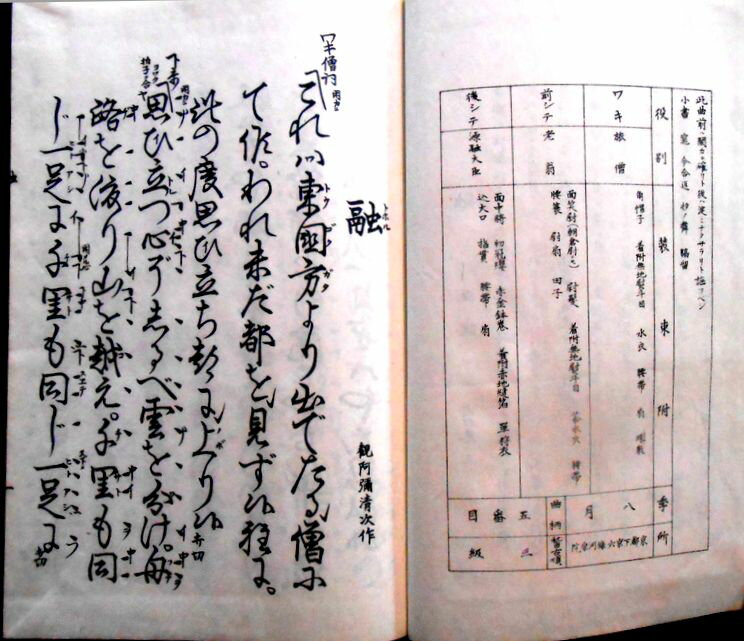 此曲前ハ閑カニ確リト後ハ凌ミテクサラリト謡フベシ
小書 窕 今合返 舞 留
役別 装束附 季 所
ワキ 旅僧 角帽子 着附無地熨斗目 水衣 腰帯 扇 珠数
前シテ 老翁 面笑尉(朝倉尉ニモ) 尉髪 着附無地熨斗目 水衣 腰帯
腰蓑 尉扇 田子
後シテ 源融大臣 面中将 初冠纓 赤金鉢巻 着附赤地縫箔 単狩衣
込大口 指貫 腰帯 扇
八月 京都下京六條河原院
曲柄 稽古順
五番目 三級
融
トホル
観阿彌清次作
ワキ僧詞 これは東國方より出でたる僧に
て候。われ未だ都を見ず候程に。
此の度思ひ立ち都に上り候
思ひ立つ心ぞしるべ雲を分け。舟
路を渡り山を越え。千里も同
じ一足に千里も同じ一足に